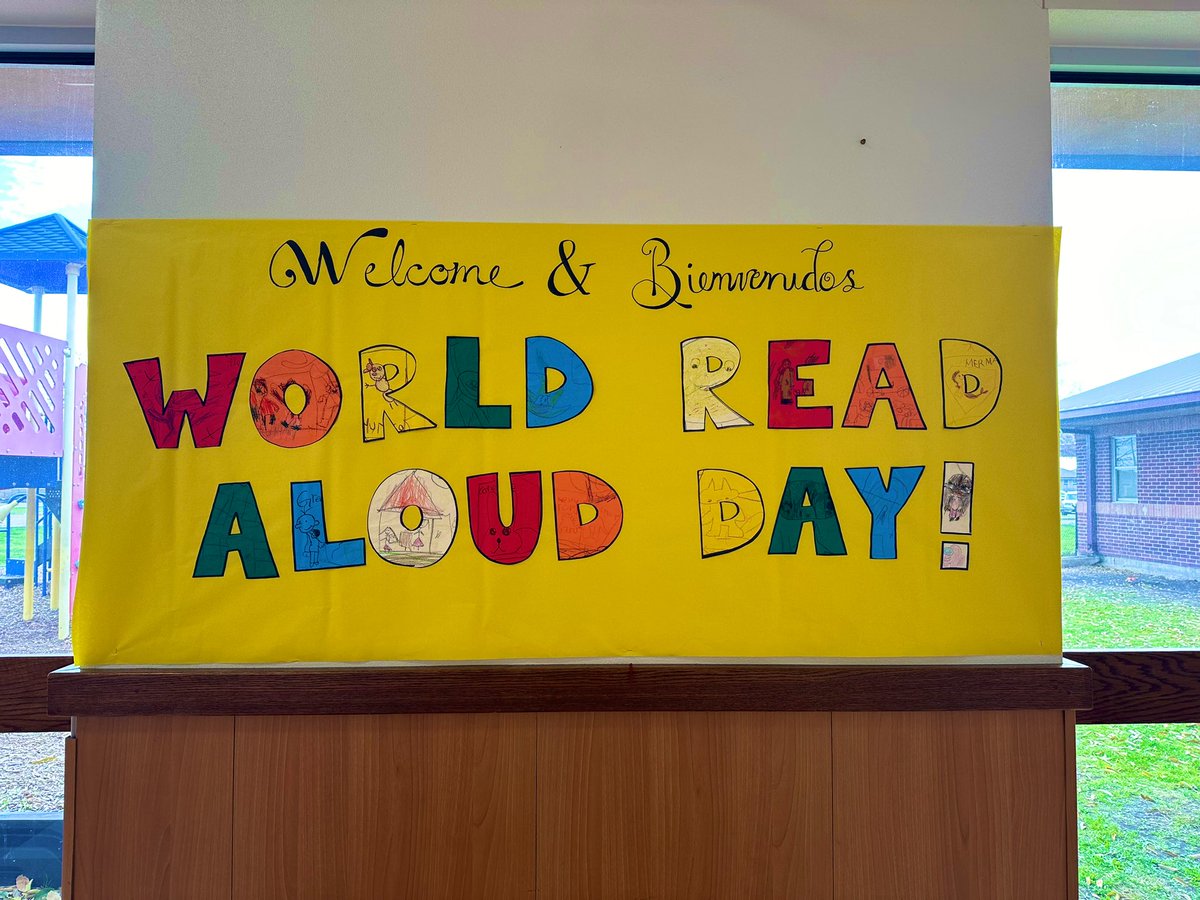 Welcome & Bienvenidos
WORLD READ
ALOUD DAY!